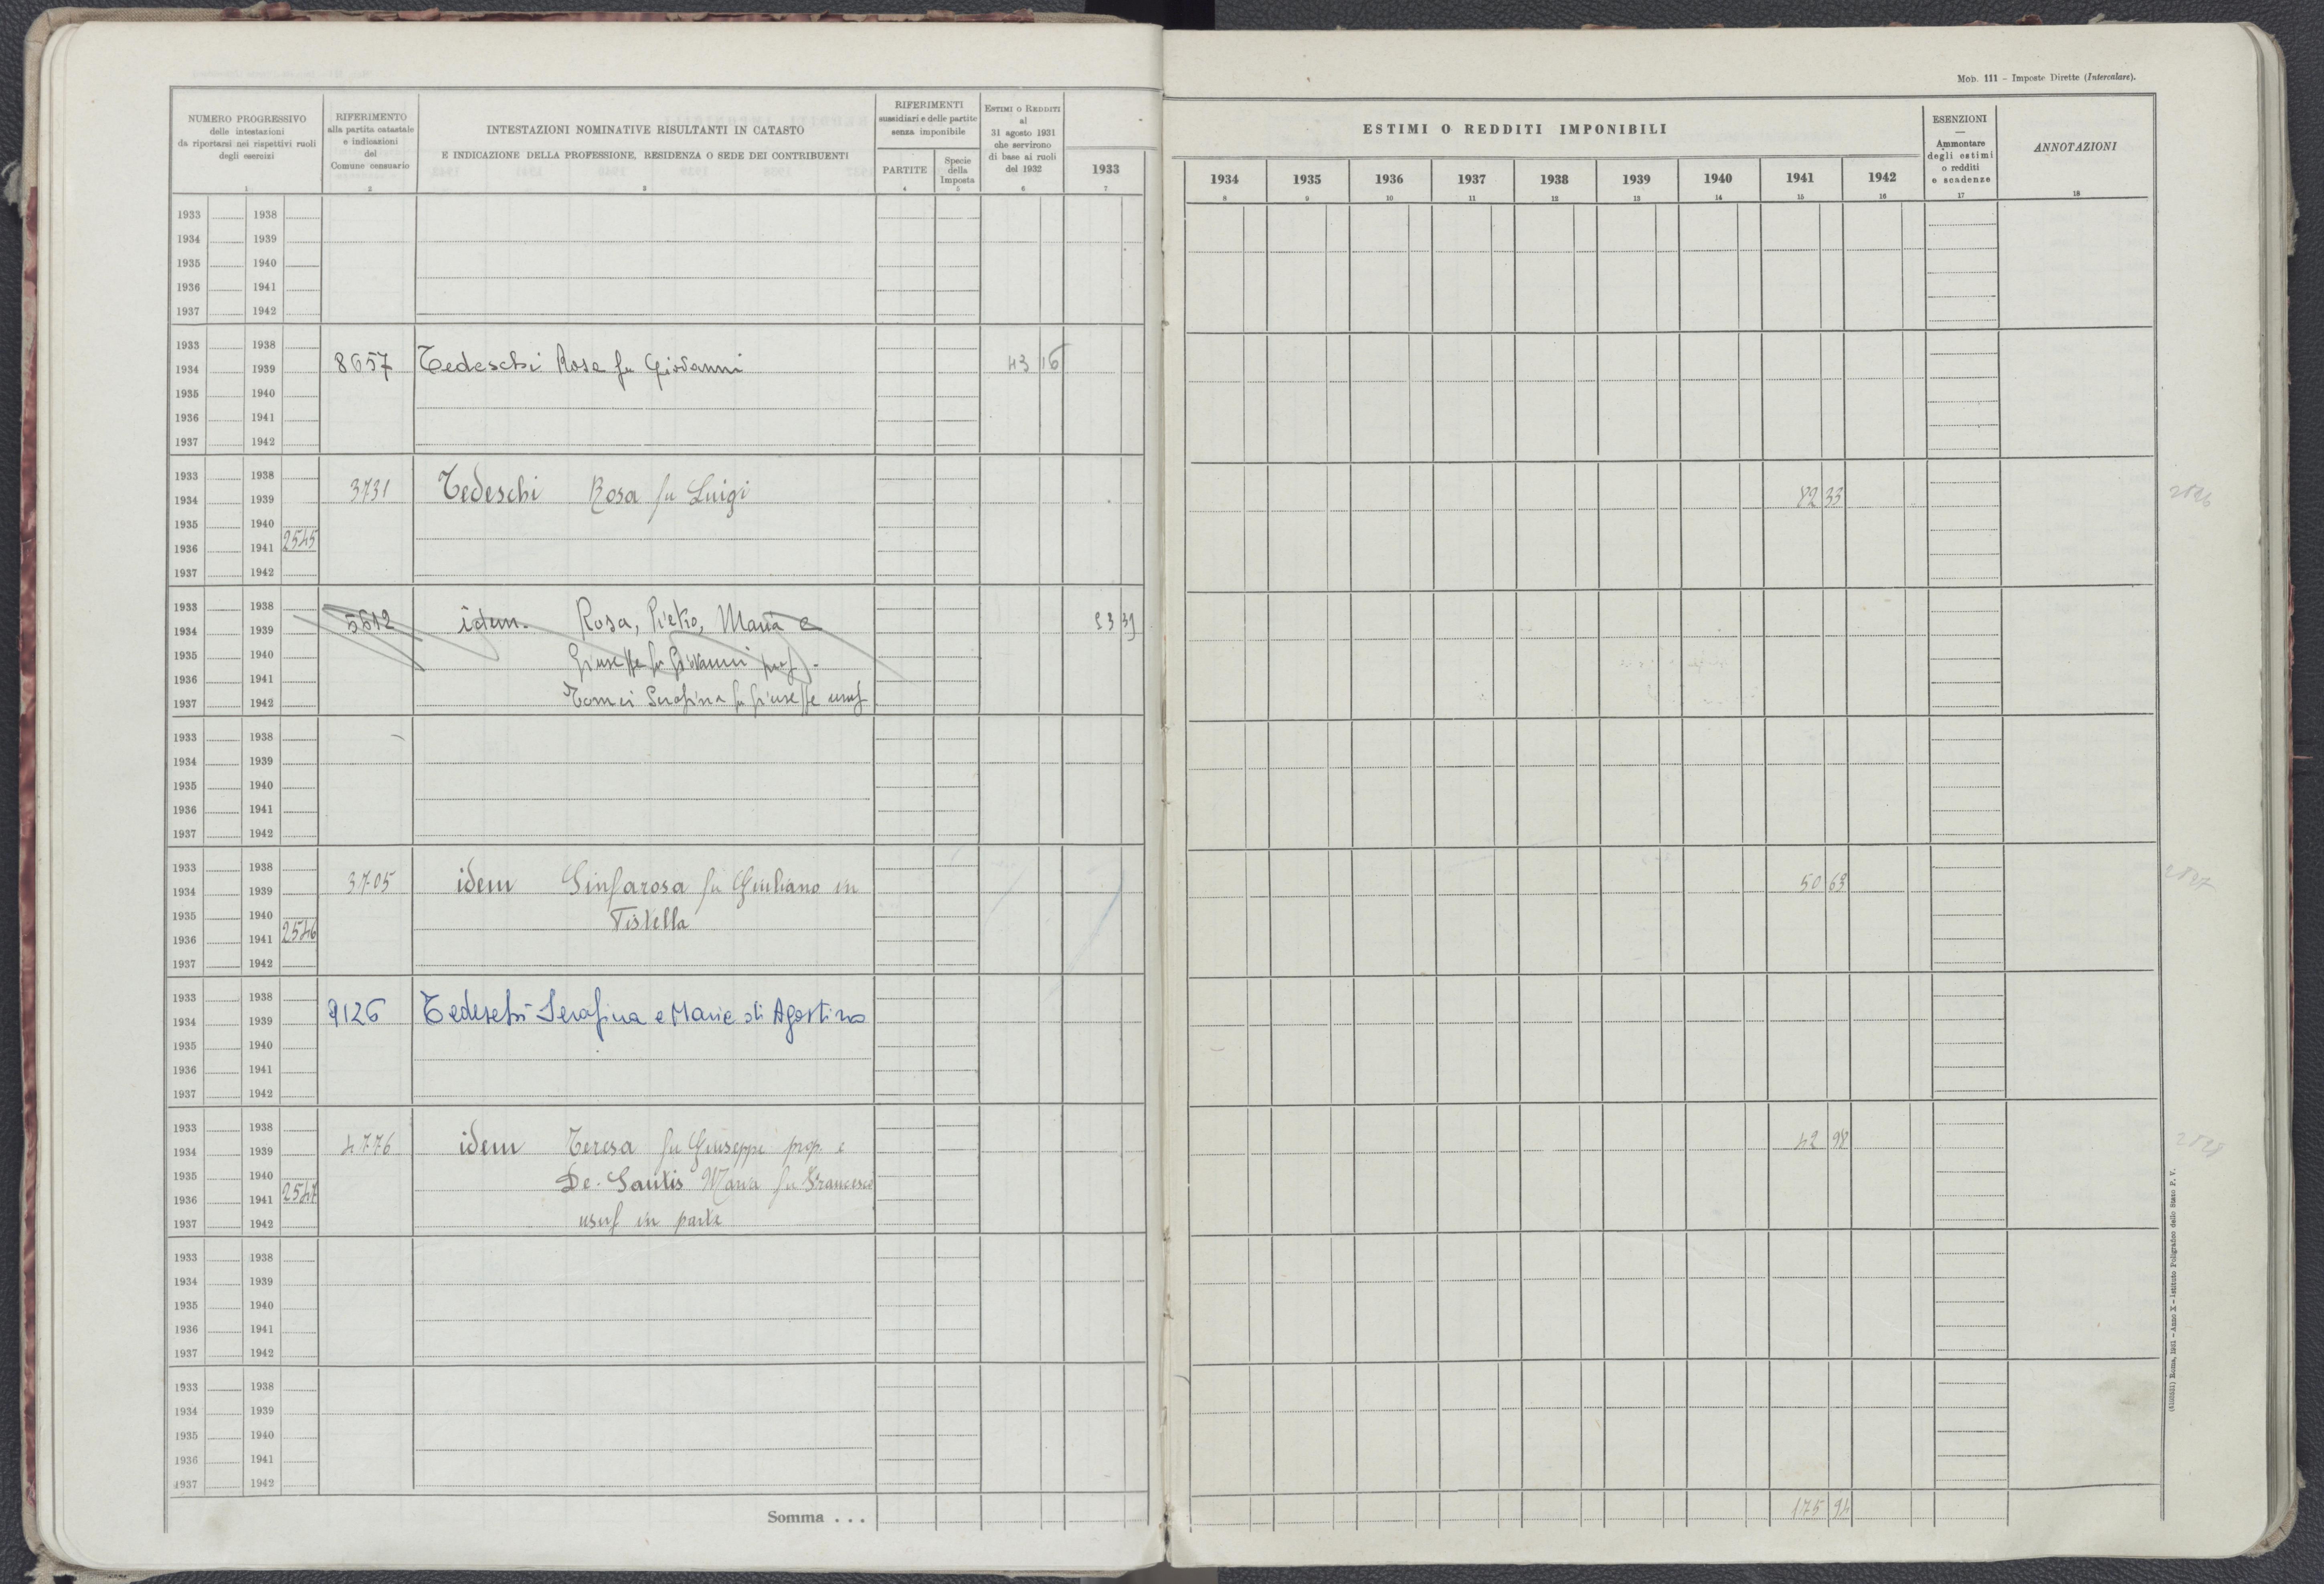 Mod. 111 – Imposte Dirette (Intercalare).
NUMERO PROGRESSIVO
delle intestazioni
da riportarsi nei rispettivi ruoli
degli esercizi
1
RIFERIMENTO
alla partita catastale
e indicazioni
del
Comune censuario
2
INTESTAZIONI NOMINATIVE RISULTANTI IN CATASTO
E INDICAZIONE DELLA PROFESSIONE, RESIDENZA O SEDE DEI CONTRIBUENTI
3
RIFERIMENTI
sussidiari e delle partite
senza imponibile
PARTITE
4
Specie
della
Imposta
5
ESTIMI O REDDITI
al
31 agosto 1931
che servirono
di base ai ruoli
del 1932
6
1933
7
ESTIMI O REDDITI IMPONIBILI
1934 1935 1936 1937 1938 1939 1940 1941 1942
8 9 10 11 12 13 14 15 16
ESENZIONI
—
Ammontare
degli estimi
o redditi
e scadenze
17
ANNOTAZIONI
18
1933 1938
1934 1939
1935 1940
1936 1941
1937 1942
1933 1938
1934 1939 8657 Tedeschi Rosa fu Giovanni 43 16
1935 1940
1936 1941
1937 1942
1933 1938
1934 1939 3731 Tedeschi Rosa fu Luigi 82 33
1935 1940
1936 1941 2545
1937 1942
1933 1938
1934 1939 5612 idem. Rosa, Pietro, Maria e
1935 1940 Giuseppe fu Giovanni prop.
1936 1941
1937 1942 Tomei Serafina fu Giuseppe usuf
1933 1938
1934 1939
1935 1940
1936 1941
1937 1942
1933 1938
1934 1939 3705 idem Sinfarosa fu Giuliano in 50 63
1935 1940 Tistella
1936 1941 2546
1937 1942
1933 1938
1934 1939 9126 Tedeschi Serafina e Maria di Agostino
1935 1940
1936 1941
1937 1942
1933 1938
1934 1939 4776 idem Teresa fu Giuseppe prop. e 42 98
1935 1940 De-Santis Maria fu Francesco
1936 1941 2547
1937 1942 usuf in parte
1933 1938
1934 1939
1935 1940
1936 1941
1937 1942
1933 1938
1934 1939
1935 1940
1936 1941
1937 1942
Somma . . . 175 94
Roma, 1931 – Anno X – Istituto Poligrafico dello Stato P. V.